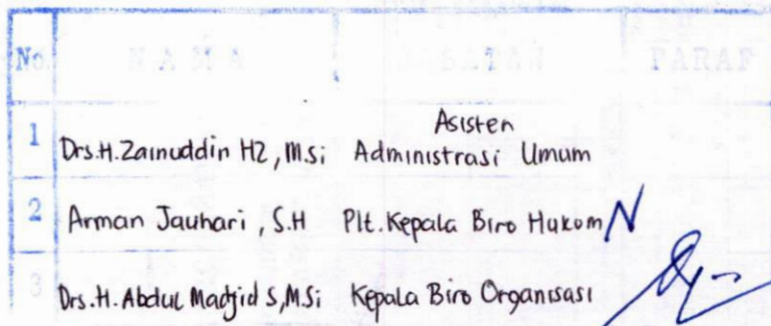 No. NAMA JABATAN PARAF
1 Drs.H.Zainuddin HZ, M.Si Asisten
Administrasi Umum
2 Arman Jauhari, S.H Plt.Kepala Biro Hukom
3 Drs.H.Abdul Madjid S,M.Si Kepala Biro Organisasi